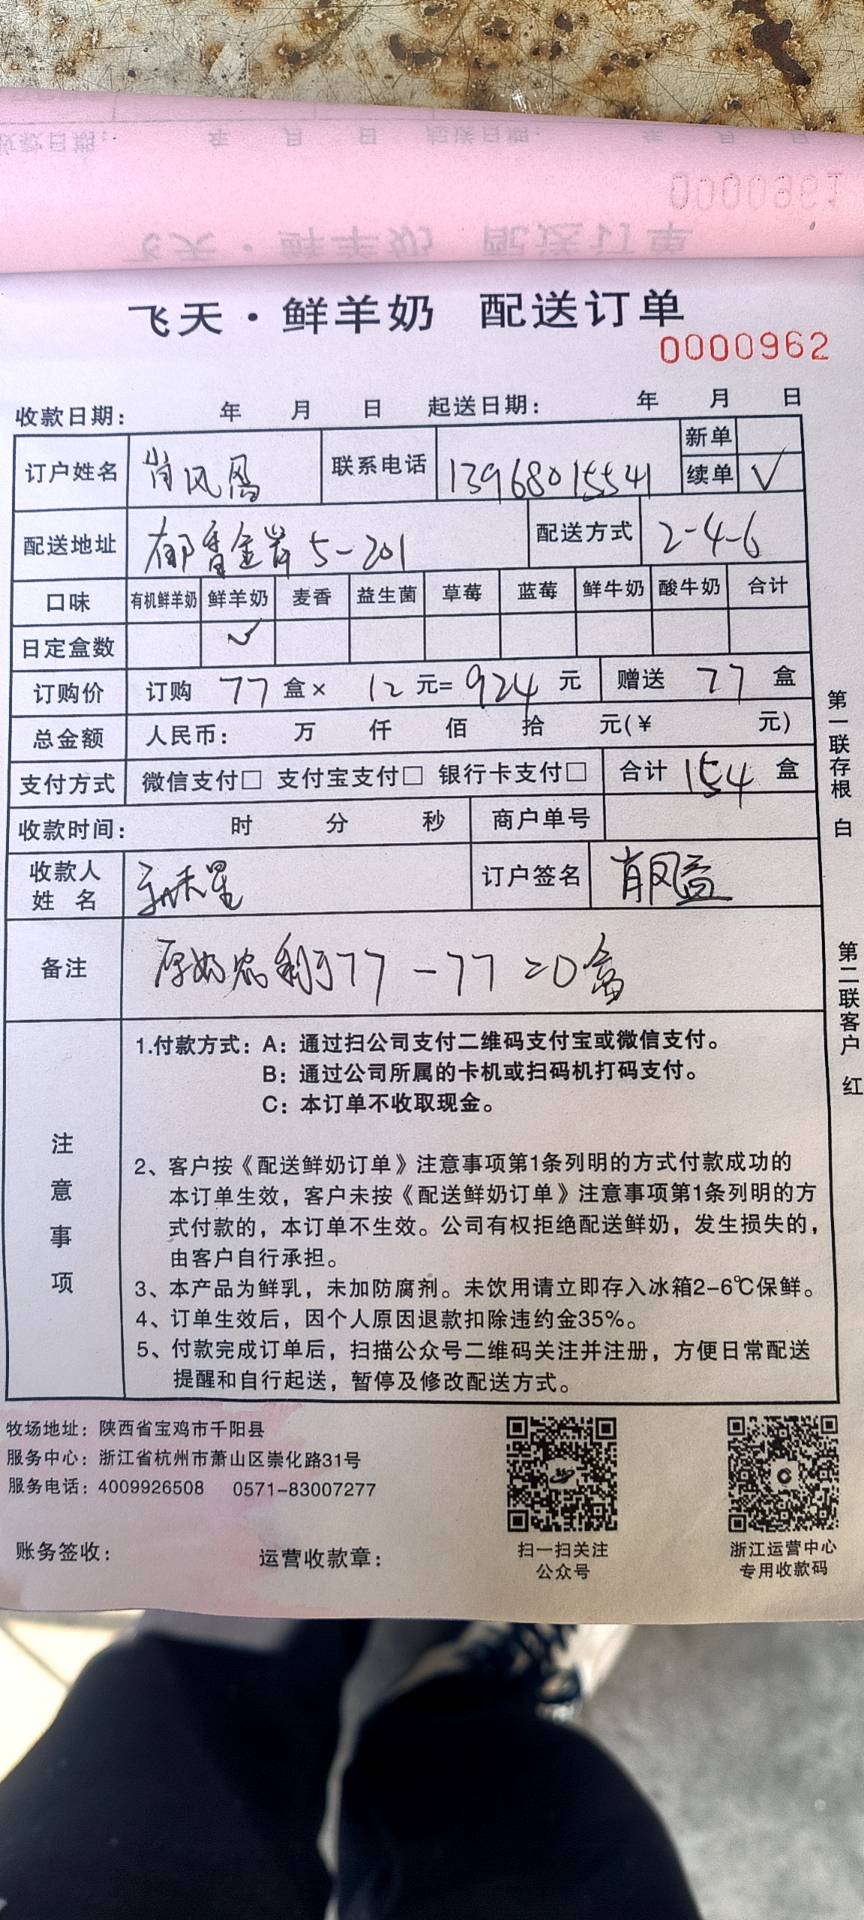 收款日期： 年 月 日 起送日期： 年 月 日
0000961
飞天·鲜羊奶 配送订单
飞天·鲜羊奶 配送订单
0000962
收款日期： 年 月 日 起送日期： 年 月 日
订户姓名 肖风 联系电话 13968015541 新单
续单 √
配送地址 郁香金岸5-201 配送方式 2-4-6
口味 有机鲜羊奶 鲜羊奶 麦香 益生菌 草莓 蓝莓 鲜牛奶 酸牛奶 合计
日定盒数 √
订购价 订购 77 盒× 12 元= 924 元 赠送 77 盒
总金额 人民币： 万 仟 佰 拾 元(¥ 元)
支付方式 微信支付□ 支付宝支付□ 银行卡支付□ 合计 154 盒
收款时间： 时 分 秒 商户单号
收款人姓名 订户签名 肖风
备注 原奶 剩于77-77=0盒
注意事项
1.付款方式：A：通过扫公司支付二维码支付宝或微信支付。
B：通过公司所属的卡机或扫码机打码支付。
C：本订单不收取现金。
2、客户按《配送鲜奶订单》注意事项第1条列明的方式付款成功的
本订单生效，客户未按《配送鲜奶订单》注意事项第1条列明的方
式付款的，本订单不生效。公司有权拒绝配送鲜奶，发生损失的，
由客户自行承担。
3、本产品为鲜乳，未加防腐剂。未饮用请立即存入冰箱2-6℃保鲜。
4、订单生效后，因个人原因退款扣除违约金35%。
5、付款完成订单后，扫描公众号二维码关注并注册，方便日常配送
提醒和自行起送，暂停及修改配送方式。
第一联存根 白
第二联客户 红
牧场地址：陕西省宝鸡市千阳县
服务中心：浙江省杭州市萧山区崇化路31号
服务电话：4009926508 0571-83007277
账务签收： 运营收款章：
扫一扫关注
公众号
浙江运营中心
专用收款码